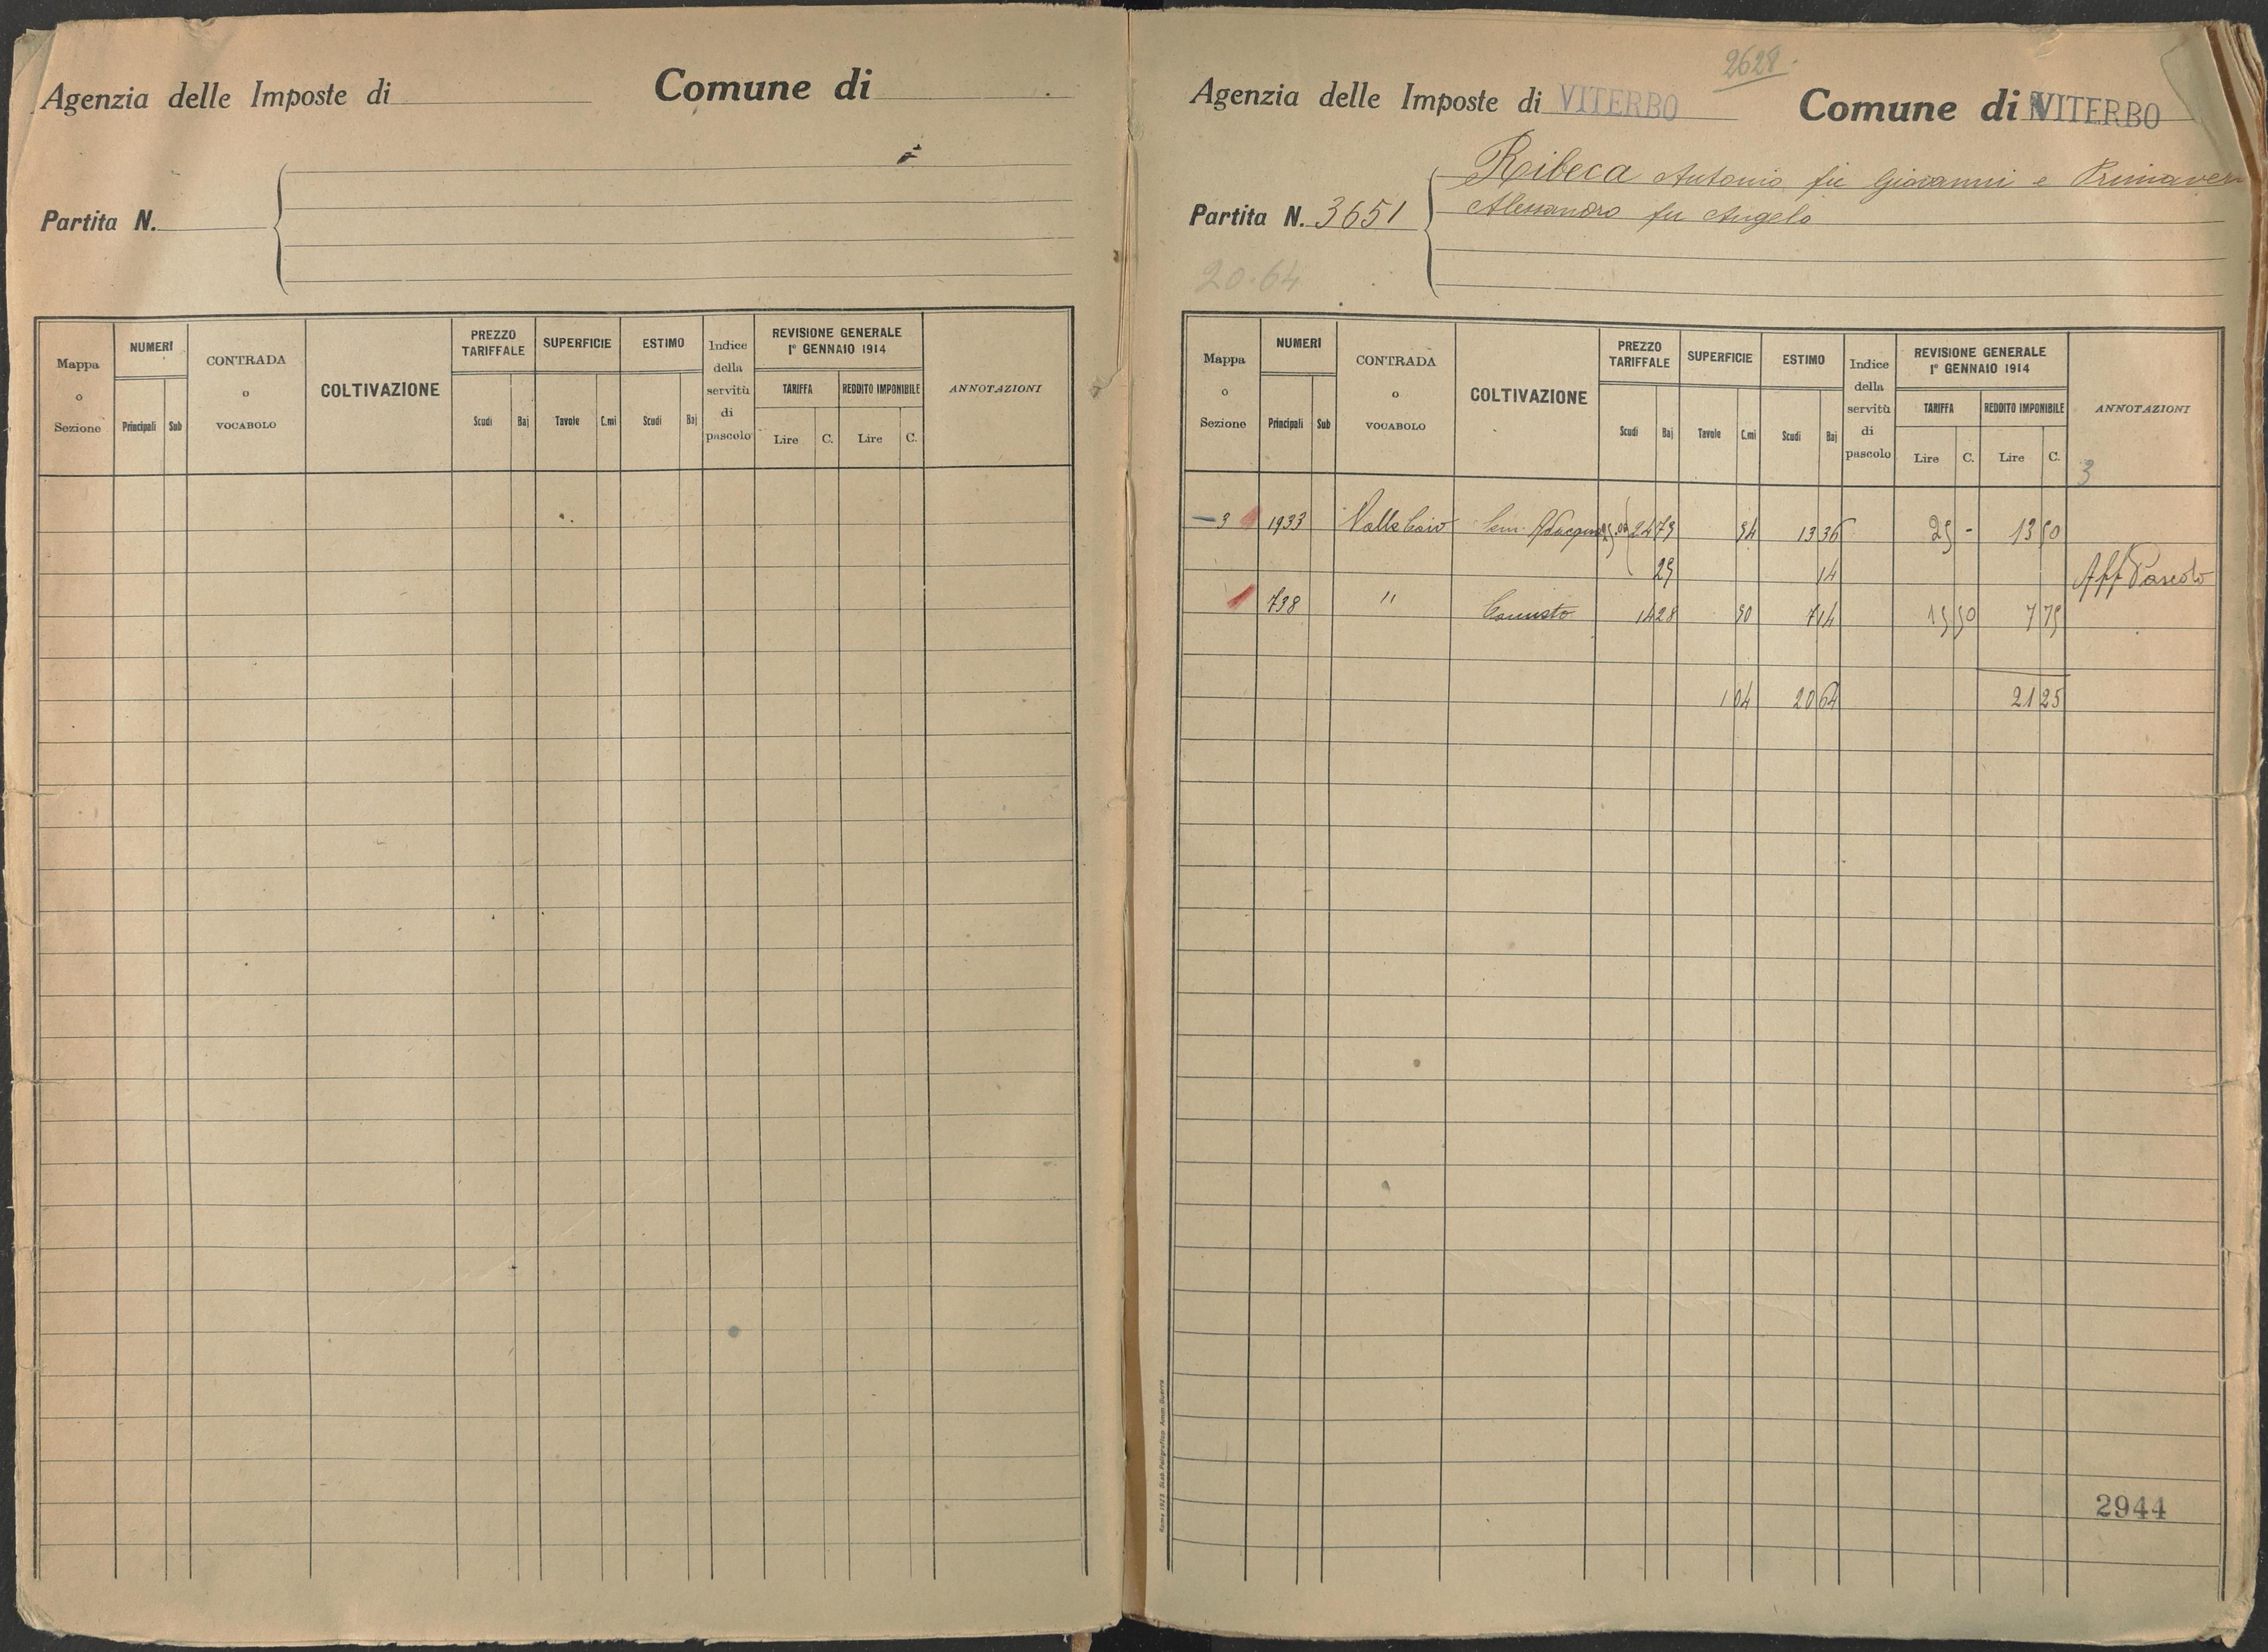 Agenzia delle Imposte di Comune di
Partita N.
Mappa o Sezione NUMERI Principali Sub CONTRADA o VOCABOLO COLTIVAZIONE PREZZO TARIFFALE Scudi Baj SUPERFICIE Tavole C.mi ESTIMO Scudi Baj Indice della servitù di pascolo REVISIONE GENERALE 1° GENNAIO 1914 TARIFFA Lire C. REDDITO IMPONIBILE Lire C. ANNOTAZIONI
2628
Agenzia delle Imposte di VITERBO Comune di VITERBO
Ribeca Antonio fu Giovanni e Primavera
Partita N. 3651 Alessandro fu Angelo
20.64
Mappa o Sezione NUMERI Principali Sub CONTRADA o VOCABOLO COLTIVAZIONE PREZZO TARIFFALE Scudi Baj SUPERFICIE Tavole C.mi ESTIMO Scudi Baj Indice della servitù di pascolo REVISIONE GENERALE 1° GENNAIO 1914 TARIFFA Lire C. REDDITO IMPONIBILE Lire C. ANNOTAZIONI
3
3 1933 Sem. 24 79 54 13 36 25 - 13 50
25 14 Aff Pascolo
1 798 " 14 28 50 7 14 15 50 7 75
1 04 20 64 21 25
Roma 1923 Stab. Poligrafico Amm. Guerra
2944